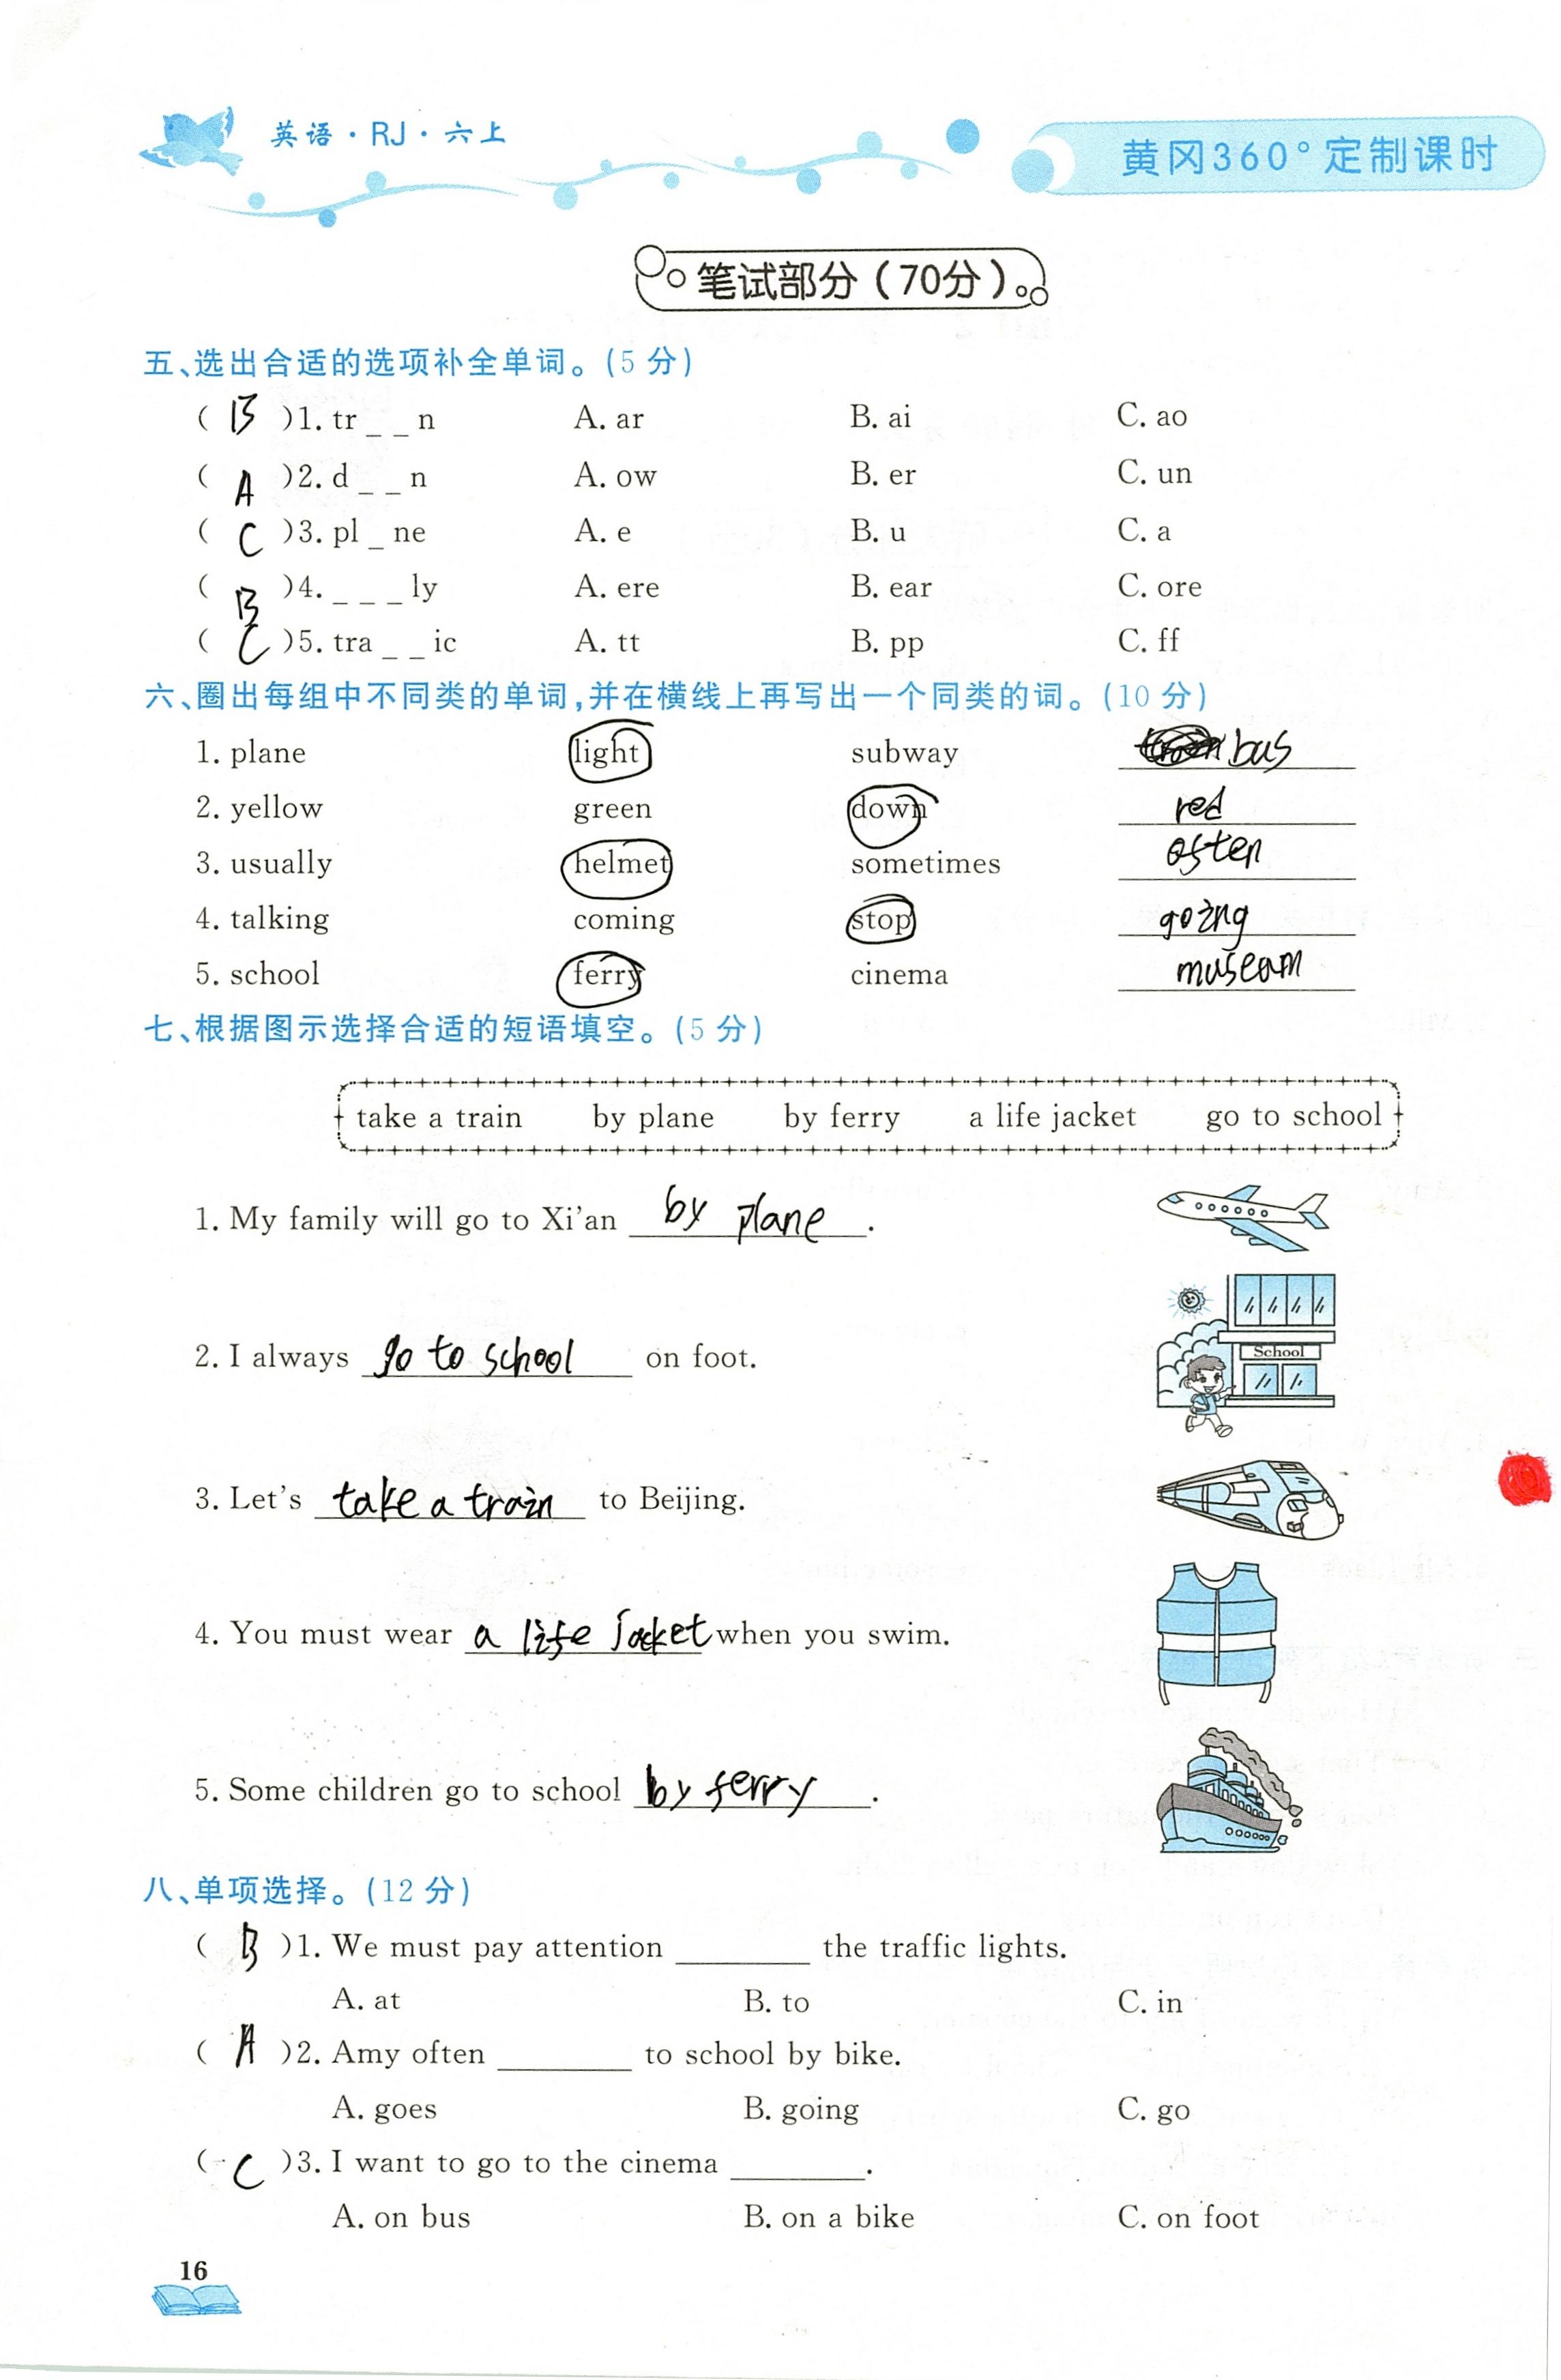 英语·RJ·六上
黄冈360°定制课时
笔试部分(70分)
五、选出合适的选项补全单词。(5分)
( B )1. tr _ _ n A. ar B. ai C. ao
( A )2. d _ _ n A. ow B. er C. un
( C )3. pl _ ne A. e B. u C. a
( B )4. _ _ _ ly A. ere B. ear C. ore
( C )5. tra _ _ ic A. tt B. pp C. ff
六、圈出每组中不同类的单词,并在横线上再写出一个同类的词。(10分)
1. plane light subway bus
2. yellow green down red
3. usually helmet sometimes often
4. talking coming stop going
5. school ferry cinema museam
七、根据图示选择合适的短语填空。(5分)
take a train by plane by ferry a life jacket go to school
1. My family will go to Xi'an by plane.
School
2. I always go to school on foot.
3. Let's take a train to Beijing.
4. You must wear a life jacket when you swim.
5. Some children go to school by ferry.
八、单项选择。(12分)
( B )1. We must pay attention ______ the traffic lights.
A. at B. to C. in
( A )2. Amy often ______ to school by bike.
A. goes B. going C. go
( C )3. I want to go to the cinema ______.
A. on bus B. on a bike C. on foot
16